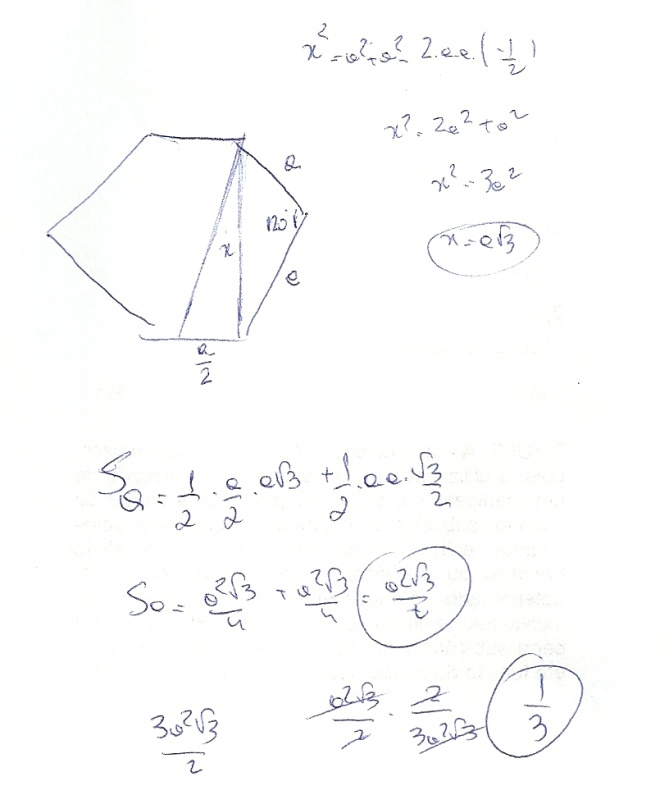 x² = a² + a² - 2.a.a.(-1/2)
x² = 2a² + a²
x² = 3a²
x = a√3
a
120°
x
a
a/2
S_Q = 1/2 . a/2 . a√3 + 1/2 . a.a . √3/2
S_Q = a²√3/4 + a²√3/4 = a²√3/2
3a²√3/2
a²√3/2 . 2/3a²√3
1/3